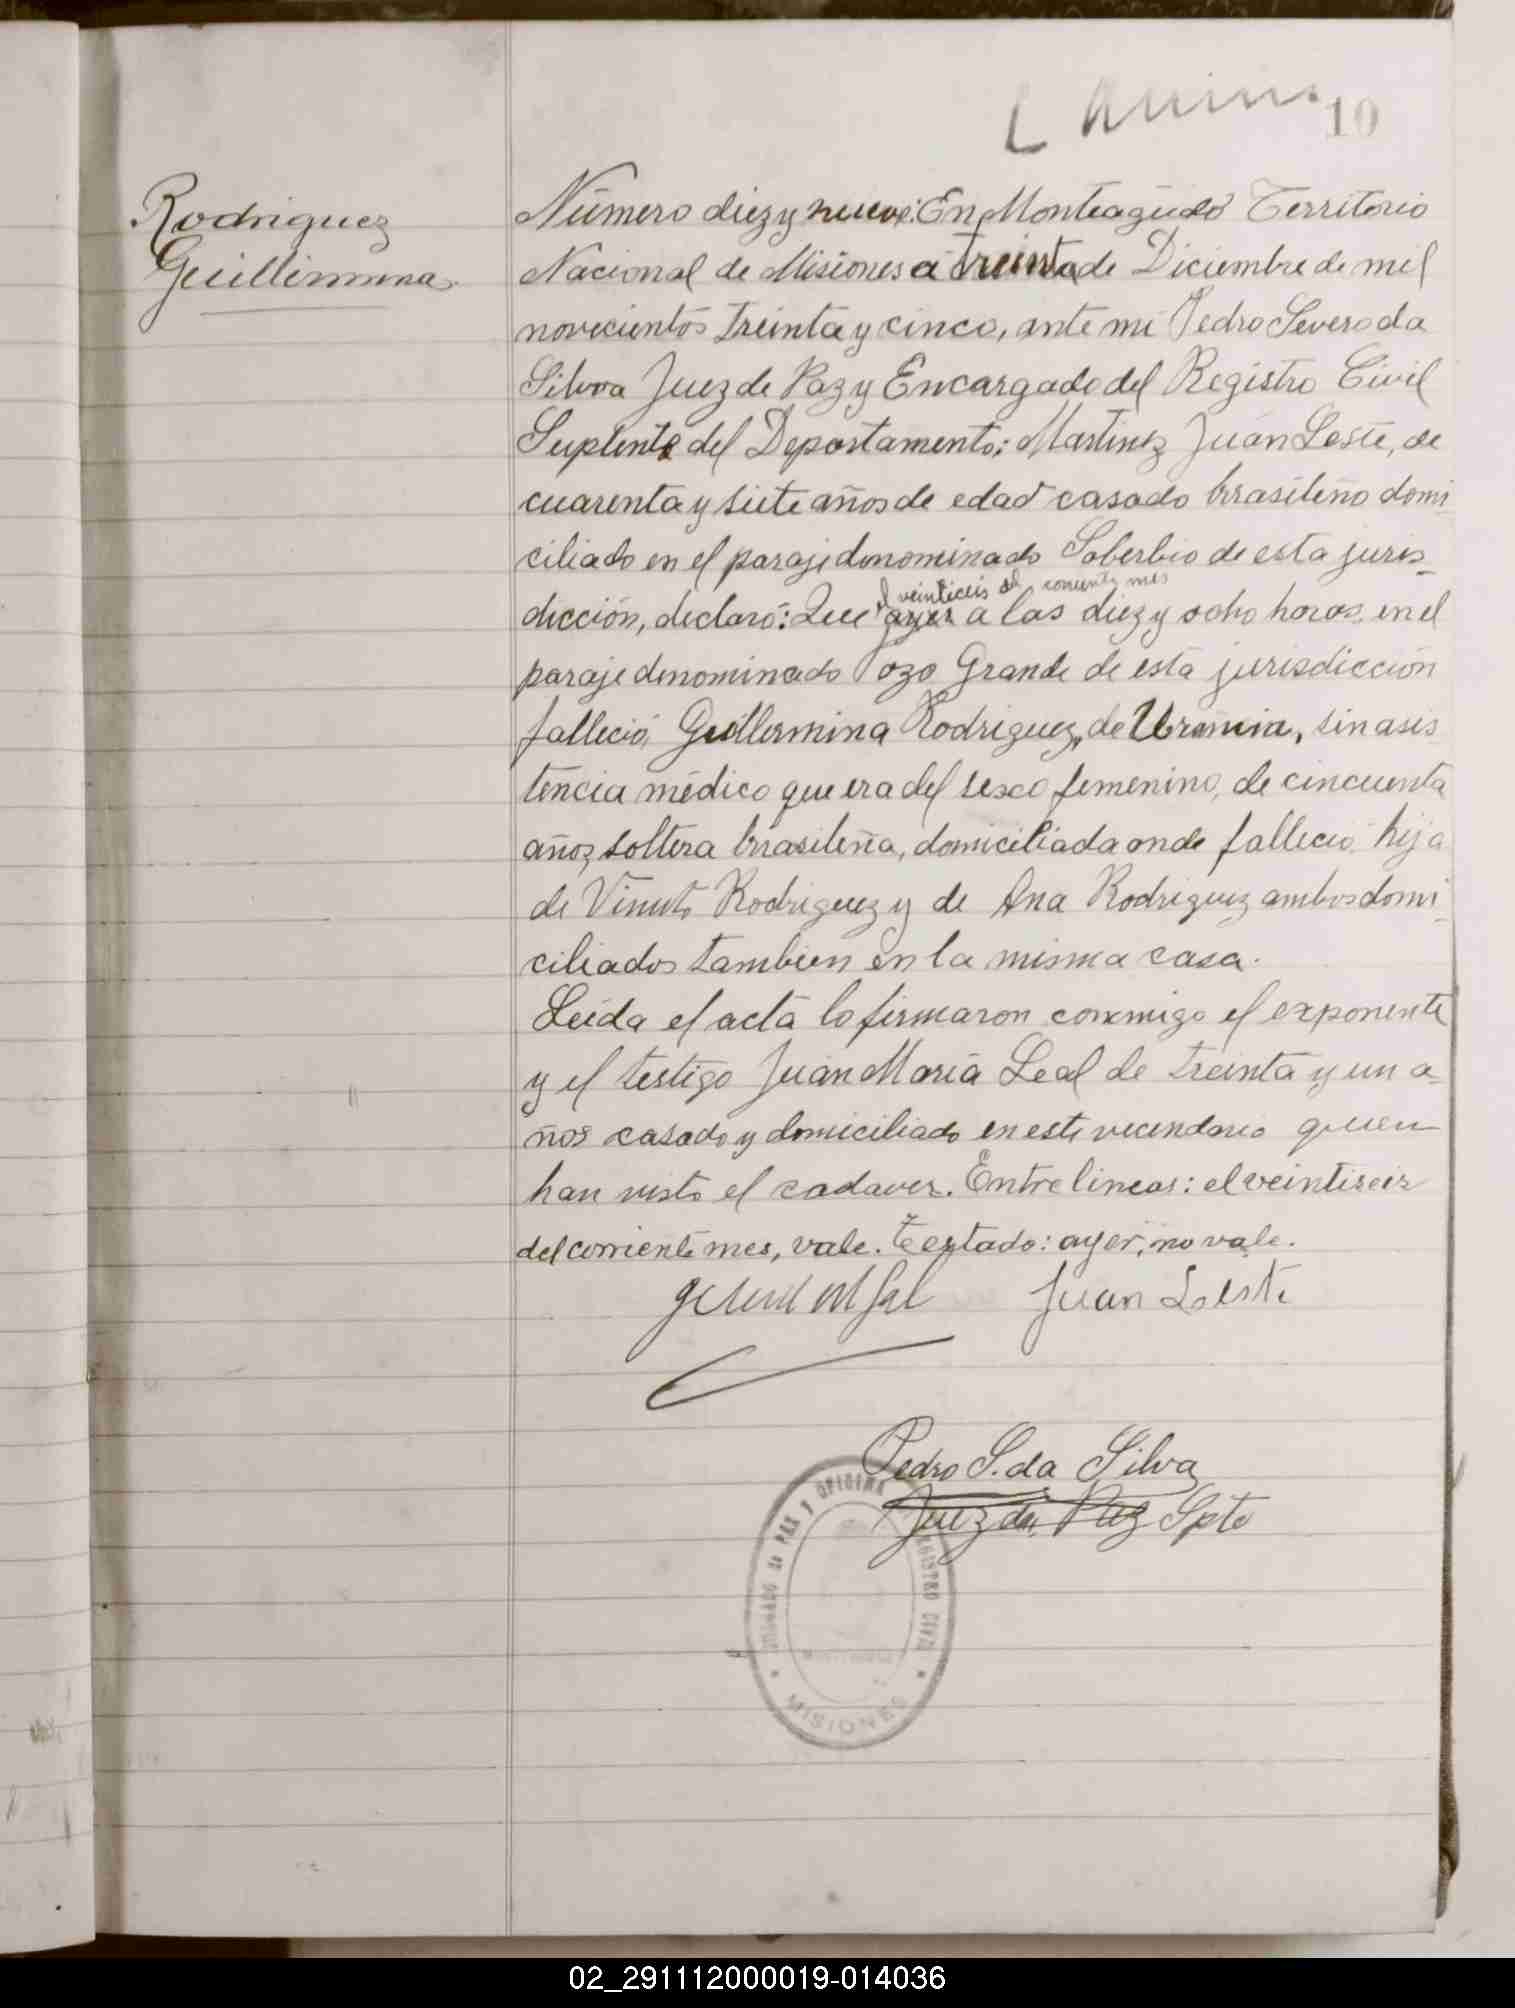 10
Rodriguez
Guillermina
Número diez y nueve: En Monteagudo Territorio
Nacional de Misiones a treinta de Diciembre de mil
novecientos treinta y cinco, ante mi Pedro Severo da
Silva Juez de Paz y Encargado del Registro Civil
Suplente del Departamento; Martinez Juan Leste, de
cuarenta y siete años de edad casado brasileño domi
ciliado en el paraje denominado Soberbio de esta juris_
el veinticeis del coriente mes
dicción, declaró: Que ayer a las diez y ocho horas, en el
paraje denominado Pozo Grande de esta jurisdicción
falleció Guillermina Rodriguez, de Uremia, sin asis
tencia médico que era del sexo femenino, de cincuenta
años, soltera brasileña, domiciliada onde fallecio hija
de Rodriguez y de Ana Rodriguez ambos domi_
ciliados tambien en la misma casa.
Leida el acta lo firmaron conmigo el exponente
y el testigo Juan Maria Leal de treinta y un a_
ños casado y domiciliado en este vecindario quien
han visto el cadaver. Entre lineas: el veintiseis
del corriente mes, vale. Testado: ayer, no vale.
Juan Leste
Pedro S. da Silva
Juez de Paz Spte
JUZGADO de PAZ Y OFICINA REGISTRO CIVIL
MISIONES
02_291112000019-014036